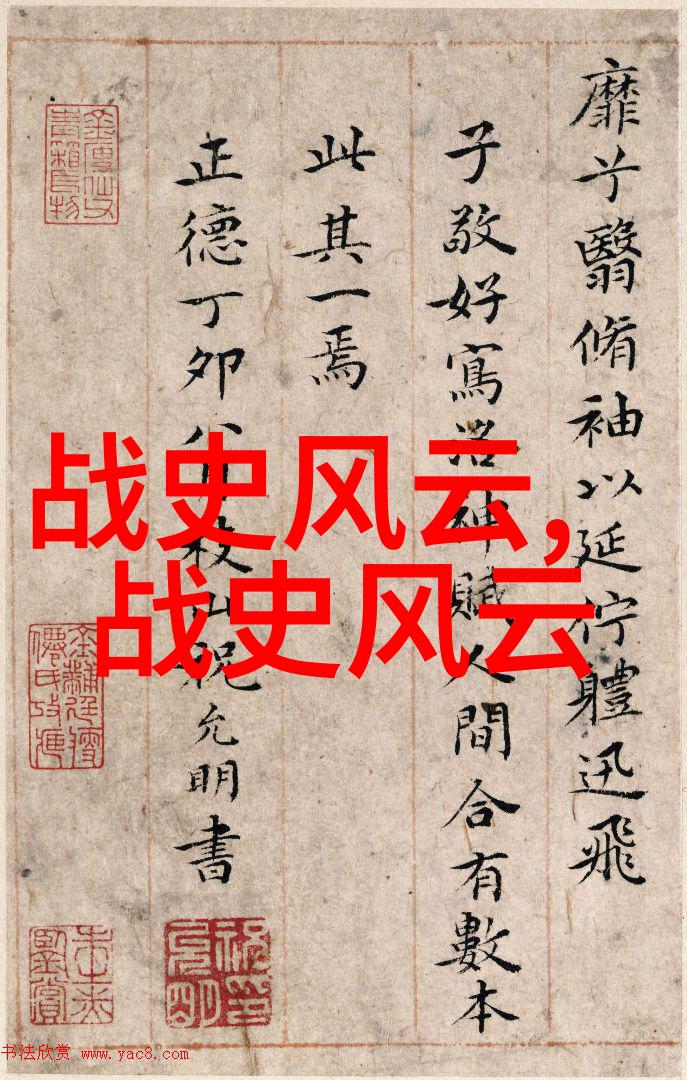 靡兮翳脩袖以延佇體迅飛
子敬好寫洛神賦人間合有數本
此其一焉
正德丁卯八月枝山祝允明書
战史风云,
战史风云
书法欣赏 www.yac8.com